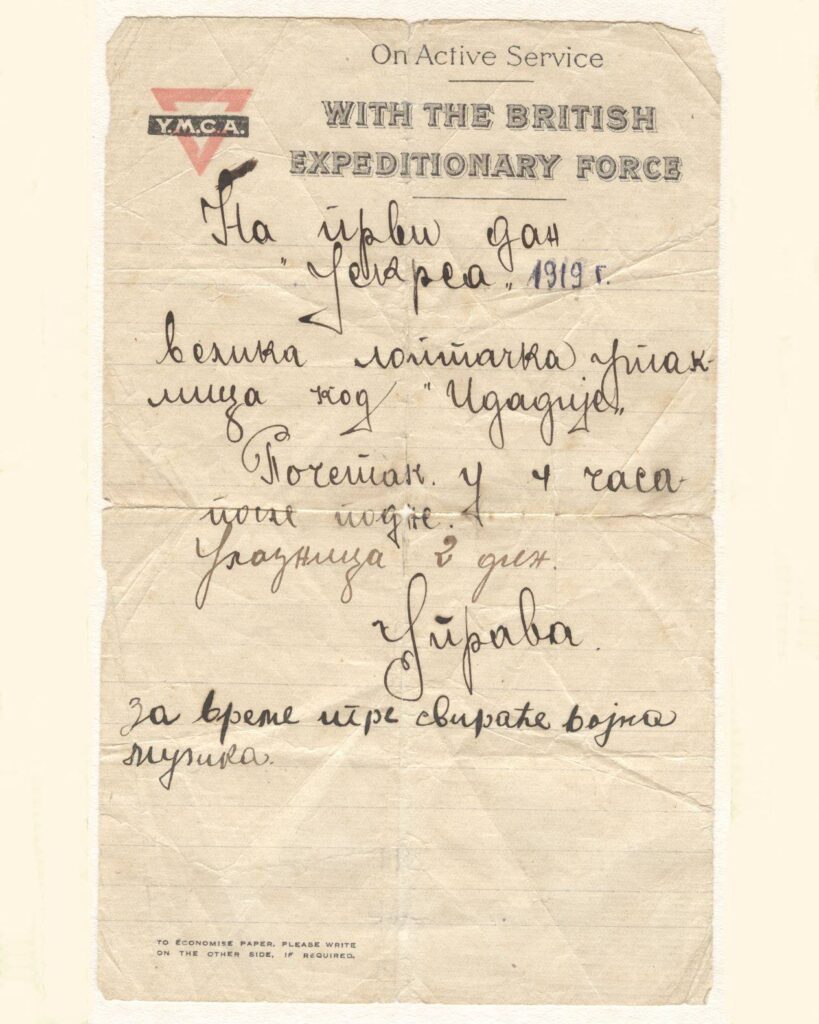 On Active Service
WITH THE BRITISH
EXPEDITIONARY FORCE
Y.M.C.A.
На први дан
"Ускрса" 1919 г.
велика лоптачка утак-
мица код "Идадије"
Почетак у 4 часа
после подне.
Улазница 2 дин.
Управа.
За време игре свираће војна
музика.
TO ECONOMISE PAPER, PLEASE WRITE
ON THE OTHER SIDE, IF REQUIRED.